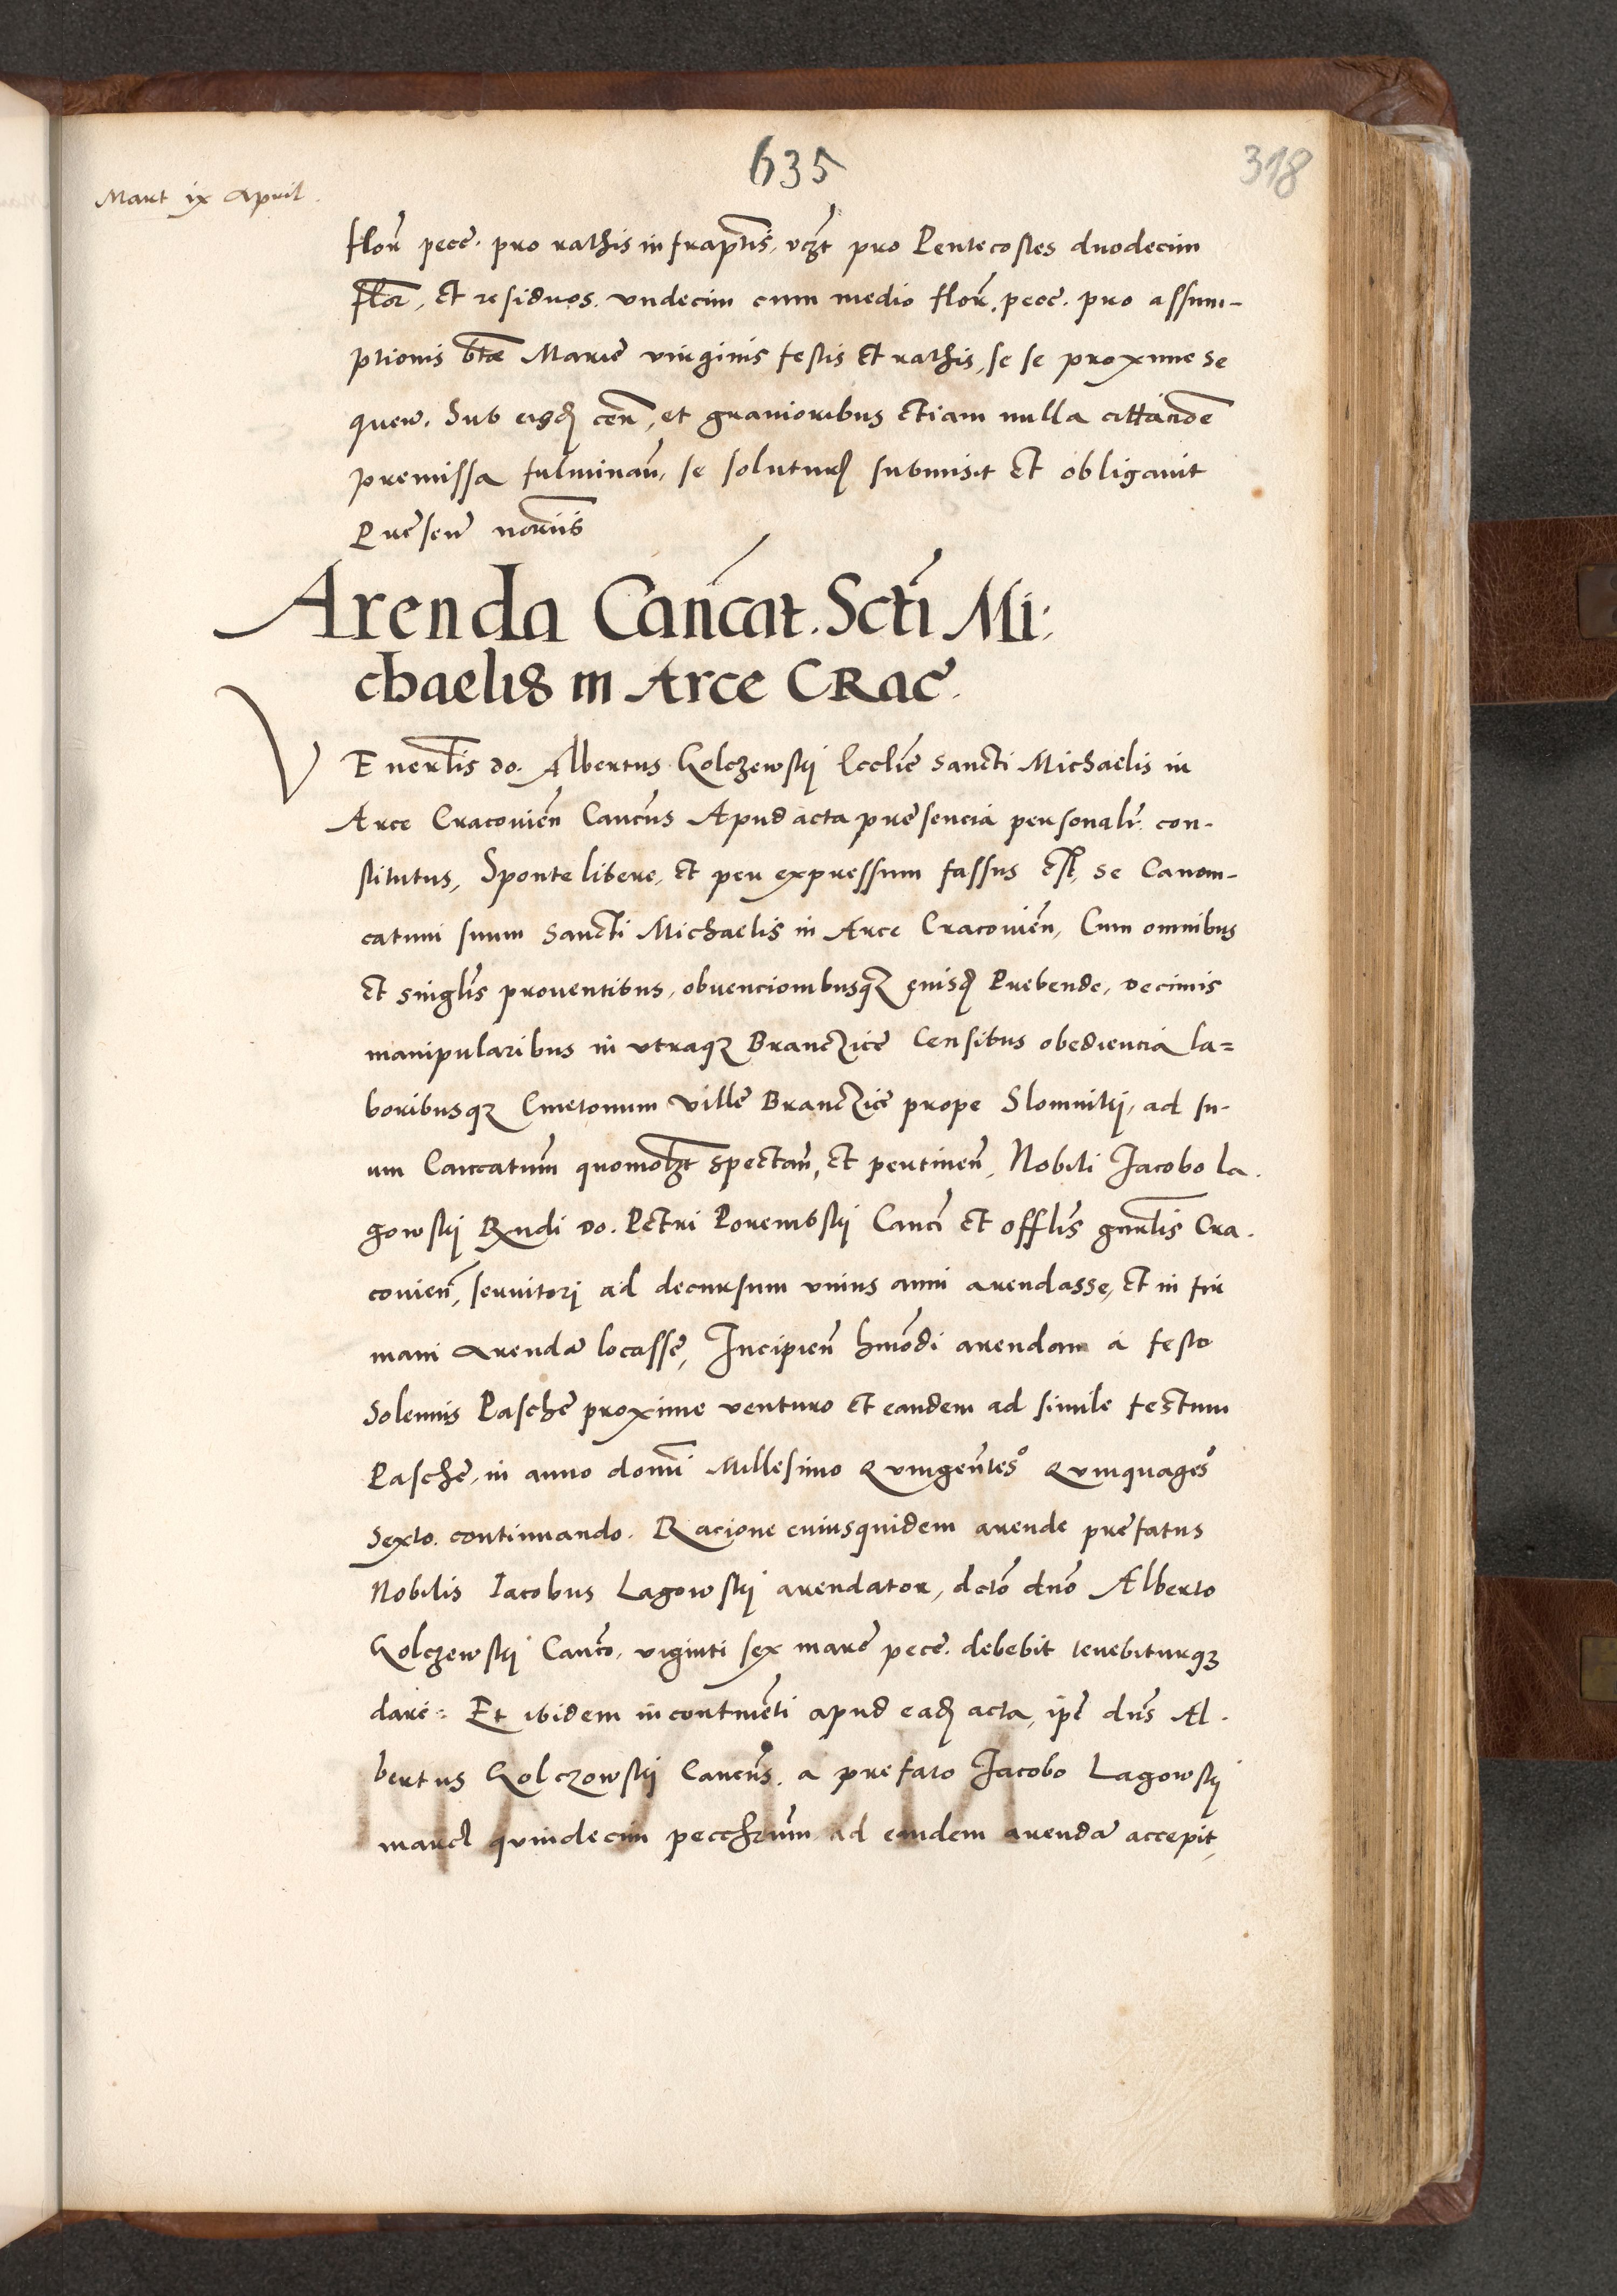 635
318
Mart ix April.
florẽ pecẽ. pro rathis infrapt̃is, vcz̃t pro Pentecostes duodecim
flor̃, et residuos. undecim cum medio flor̃. pecẽ. pro assum-
ptionis bt̃ae Marie virginis festis et rathis, se se proxime se
queñ. Sub eisd̃ ceñ, et gravioribus etiam nulla
premissa fulminañ, se soluturũ submisit et obligavit
Presenẽ not̃ariis
Arenda Cañcat. Sct̃i Mi:
chaelis in Arce CRAC̃.
VEner̃lis do. Albertus Golczewskij Eccl̃ie Sancti Michaelis in
Arce Cracovieñ Canc̃us Apud acta presencia personalr̃ con-
stitutus, Sponte libere, et per expressum fassus est, se Canoni-
catum suum Sancti Michaelis in Arce Cracovieñ, Cum omnibus
et singl̃is proventibus, obvencionibusqz eiusd̃ Prebende, decimis
manipularibus in utraqz Branczicẽ Censibus obediencia la=
boribusqz Cmetonum Ville Branczicẽ prope Slomnikj, ad su-
um Canc̃catum quomol̃zt spectañ, et pertineñ, Nobili Jacobo La.
gowskij Rñdi do. Petri Porembskij Canc̃i et offl̃is gñrlis Cra.
covieñ, servitori ad decursum unius anni arendasse, et in fir
mam arendã locasse, Incipieñ hmõdi arendam a festo
Solennis Pasche proxime venturo et eandem ad simile festum
Pasche, in anno domĩ Millesimo Quingentesº Quinquagesº
Sexto. continuando. Racione cuiusquidem arende prefatus
Nobilis Jacobus Lagowskij arendator, dct̃o dñо Alberto
Golczewskij Canc̃o, viginti sex marc̃ pecẽ. debebit tenebiturqz
dare: Et ibidem incontinẽti apud ead̃ acta, ip̃e dñs Al.
bertus Golczowskij Canc̃us. a prefato Jacobo Lagowskij
marcas quindecim ad eandem arendã accepit,